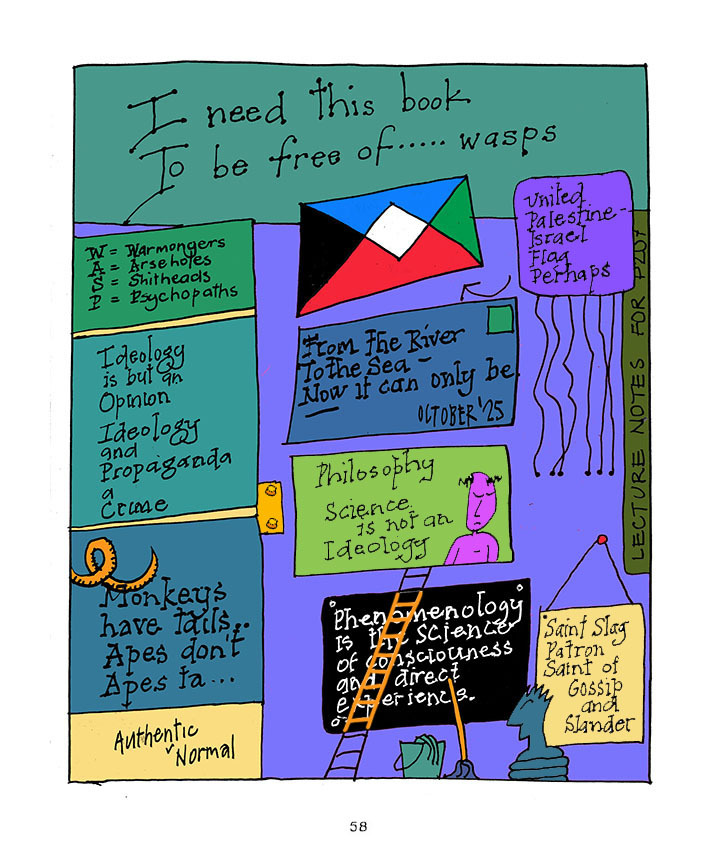 I need this book
To be free of..... wasps
W = Warmongers
A = Arseholes
S = Shitheads
P = Psychopaths
Ideology
is but an
Opinion
Ideology
and
Propaganda
a
Crime
Monkeys
have tails..
Apes don't
Apes ta...
Authentic
Normal
United
Palestine-
Israel
Flag
Perhaps
From the River
To the Sea -
Now it can only be
OCTOBER '25
Philosophy
Science
is not an
Ideology
Phenomenology
is the science
of consciouness
and direct
experience.
LECTURE NOTES FOR
Saint Slag
Patron
Saint of
Gossip
and
Slander
58